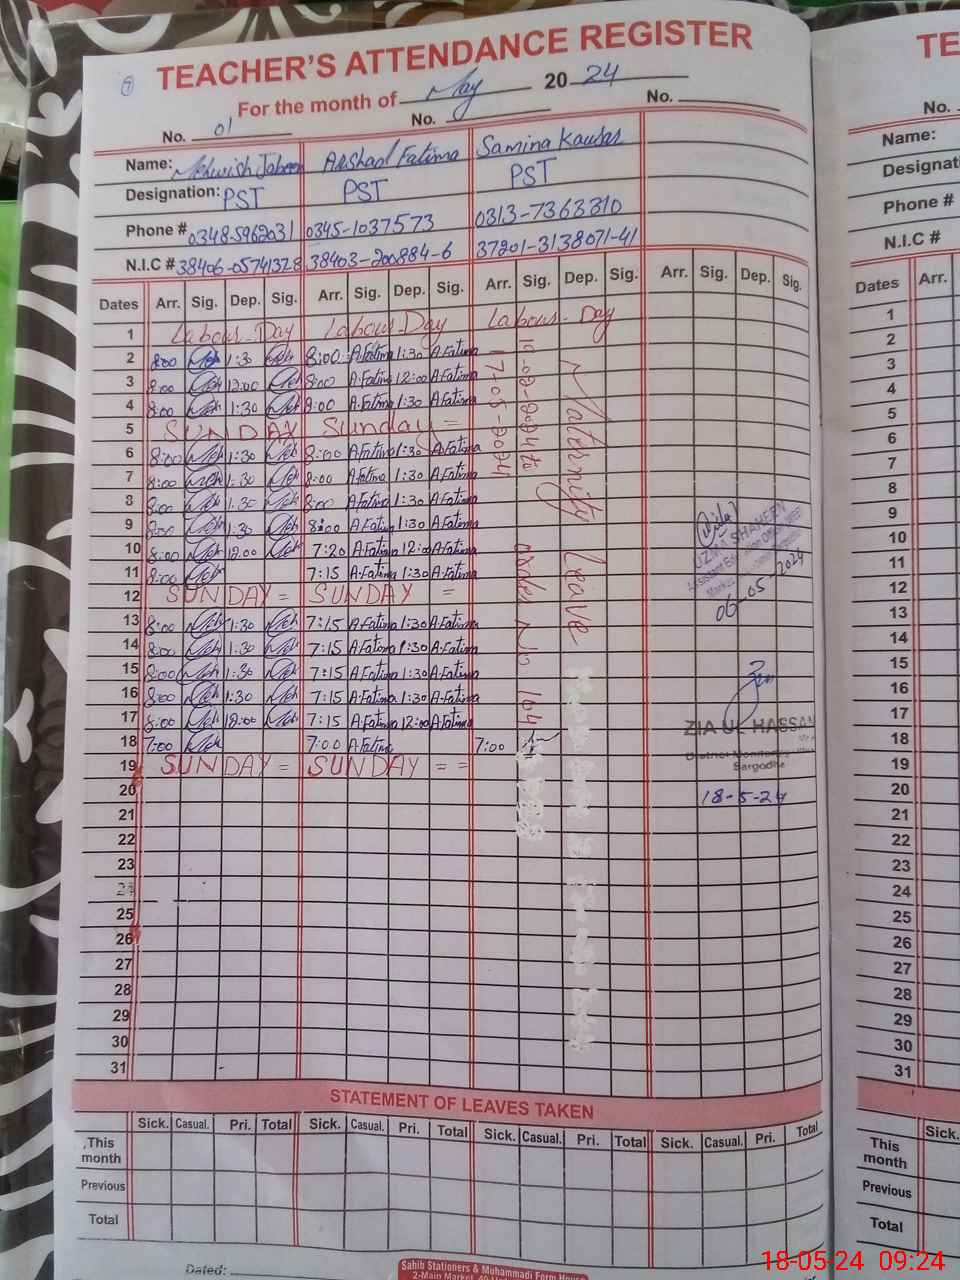 TEACHER'S ATTENDANCE REGISTER TE
7
For the month of May 20 24
No. 01 No. No. No.
Name: Mehwish Jabeen Arshad Fatima Samina Kausar Name:
Designation: PST PST PST Designati
Phone # 0348-5962031 0345-1037573 0313-7363310 Phone #
N.I.C # 38406-05741328 38403-200884-6 37201-3138071-41 N.I.C #
Dates Arr. Sig. Dep. Sig. Arr. Sig. Dep. Sig. Arr. Sig. Dep. Sig. Arr. Sig. Dep. Sig. Dates Arr.
1 Labour-Day Labour-Day Labour-Day 1
2 8:00 Meh 1:30 Meh 8:00 A.Fatima 1:30 A.Fatima 2
3 8:00 Meh 12:00 Meh 8:00 A.Fatima 12:00 A.Fatima 3
4 8:00 Meh 1:30 Meh 8:00 A.Fatima 1:30 A.Fatima 4
5 SUNDAY Sunday = 5
6 8:00 Meh 1:30 Meh 8:00 A.Fatima 1:30 A.Fatima 6
7 8:00 Meh 1:30 Meh 8:00 A.Fatima 1:30 A.Fatima 7
8 8:00 Meh 1:30 Meh 8:00 A.Fatima 1:30 A.Fatima 8
9 8:00 Meh 1:30 Meh 8:00 A.Fatima 1:30 A.Fatima 9
10 8:00 Meh 12:00 Meh 7:20 A.Fatima 12:00 A.Fatima 10
11 8:00 Meh 7:15 A.Fatima 1:30 A.Fatima 11
12 SUNDAY = SUNDAY = 12
13 8:00 Meh 1:30 Meh 7:15 A.Fatima 1:30 A.Fatima 13
14 8:00 Meh 1:30 Meh 7:15 A.Fatima 1:30 A.Fatima 14
15 8:00 Meh 1:30 Meh 7:15 A.Fatima 1:30 A.Fatima 15
16 8:00 Meh 1:30 Meh 7:15 A.Fatima 1:30 A.Fatima 16
17 8:00 Meh 12:00 Meh 7:15 A.Fatima 12:00 A.Fatima 17
18 7:00 Meh 7:00 A.Fatima 7:00 18
19 SUNDAY = SUNDAY = = 19
20 20
21 21
22 22
23 23
23 24
25 25
26 26
27 27
28 28
29 29
30 30
31 31
Maternity leave
-02-2024 to
17-05-2024
No 164
UZMA SHAHEEN
Assistant Education Officer
Markaz
06-05-2024
ZIA UL HASSAN
District Monitoring
Sargodha
18-5-24
STATEMENT OF LEAVES TAKEN
Sick. Casual. Pri. Total Sick. Casual. Pri. Total Sick. Casual. Pri. Total Sick. Casual. Pri. Total Sick.
This month This month
Previous Previous
Total Total
Dated:
Sahib Stationers & Muhammadi Form House
2-Main Market,
18-05-24 09:24